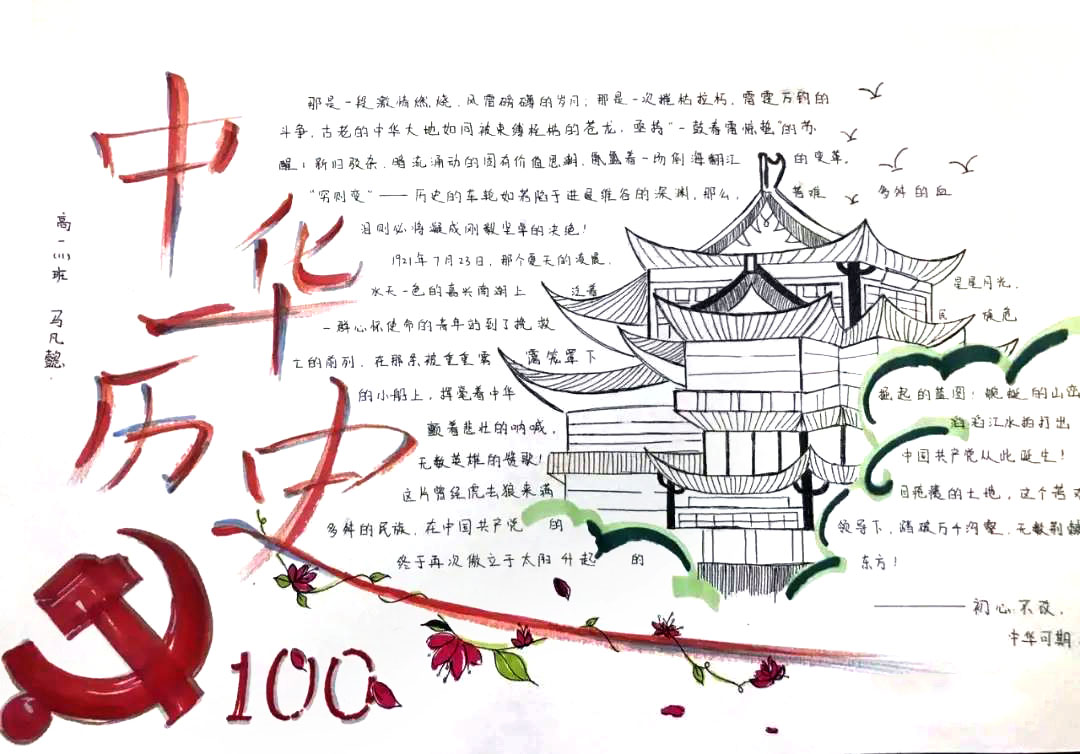 中华历史
高一(1)班 马凡懿
那是一段激情燃烧、风雷磅礴的岁月；那是一次摧枯拉朽、雷霆万钧的
斗争，古老的中华大地如同被束缚桎梏的苍龙，亟待"一鼓春雷惊蛰"的苏
醒！新旧驳杂、暗流涌动的固有价值思潮，氤氲着一场倒海翻江 的变革。
"穷则变"——历史的车轮如若陷于进退维谷的深渊，那么， 苦难 多舛的血
泪则必将凝成刚毅坚卓的决绝！
1921年7月23日，那个夏天的凌晨，
水天一色的嘉兴南湖上 泛着 星星月光，
一群心怀使命的青年站到了挽救 民族危
亡的前列，在那条被重重雾 霭笼罩下
的小船上，挥毫着中华 崛起的蓝图；蜿蜒的山峦
颤着悲壮的呐喊， 滔滔江水拍打出
无数英雄的赞歌！ 中国共产党从此诞生！
这片曾经虎去狼来满 目疮痍的土地，这个苦难
多舛的民族，在中国共产党 的 领导下，踏破万千沟壑、无数荆棘
终于再次傲立于太阳升起 的 东方！
——初心不改，
中华可期
100